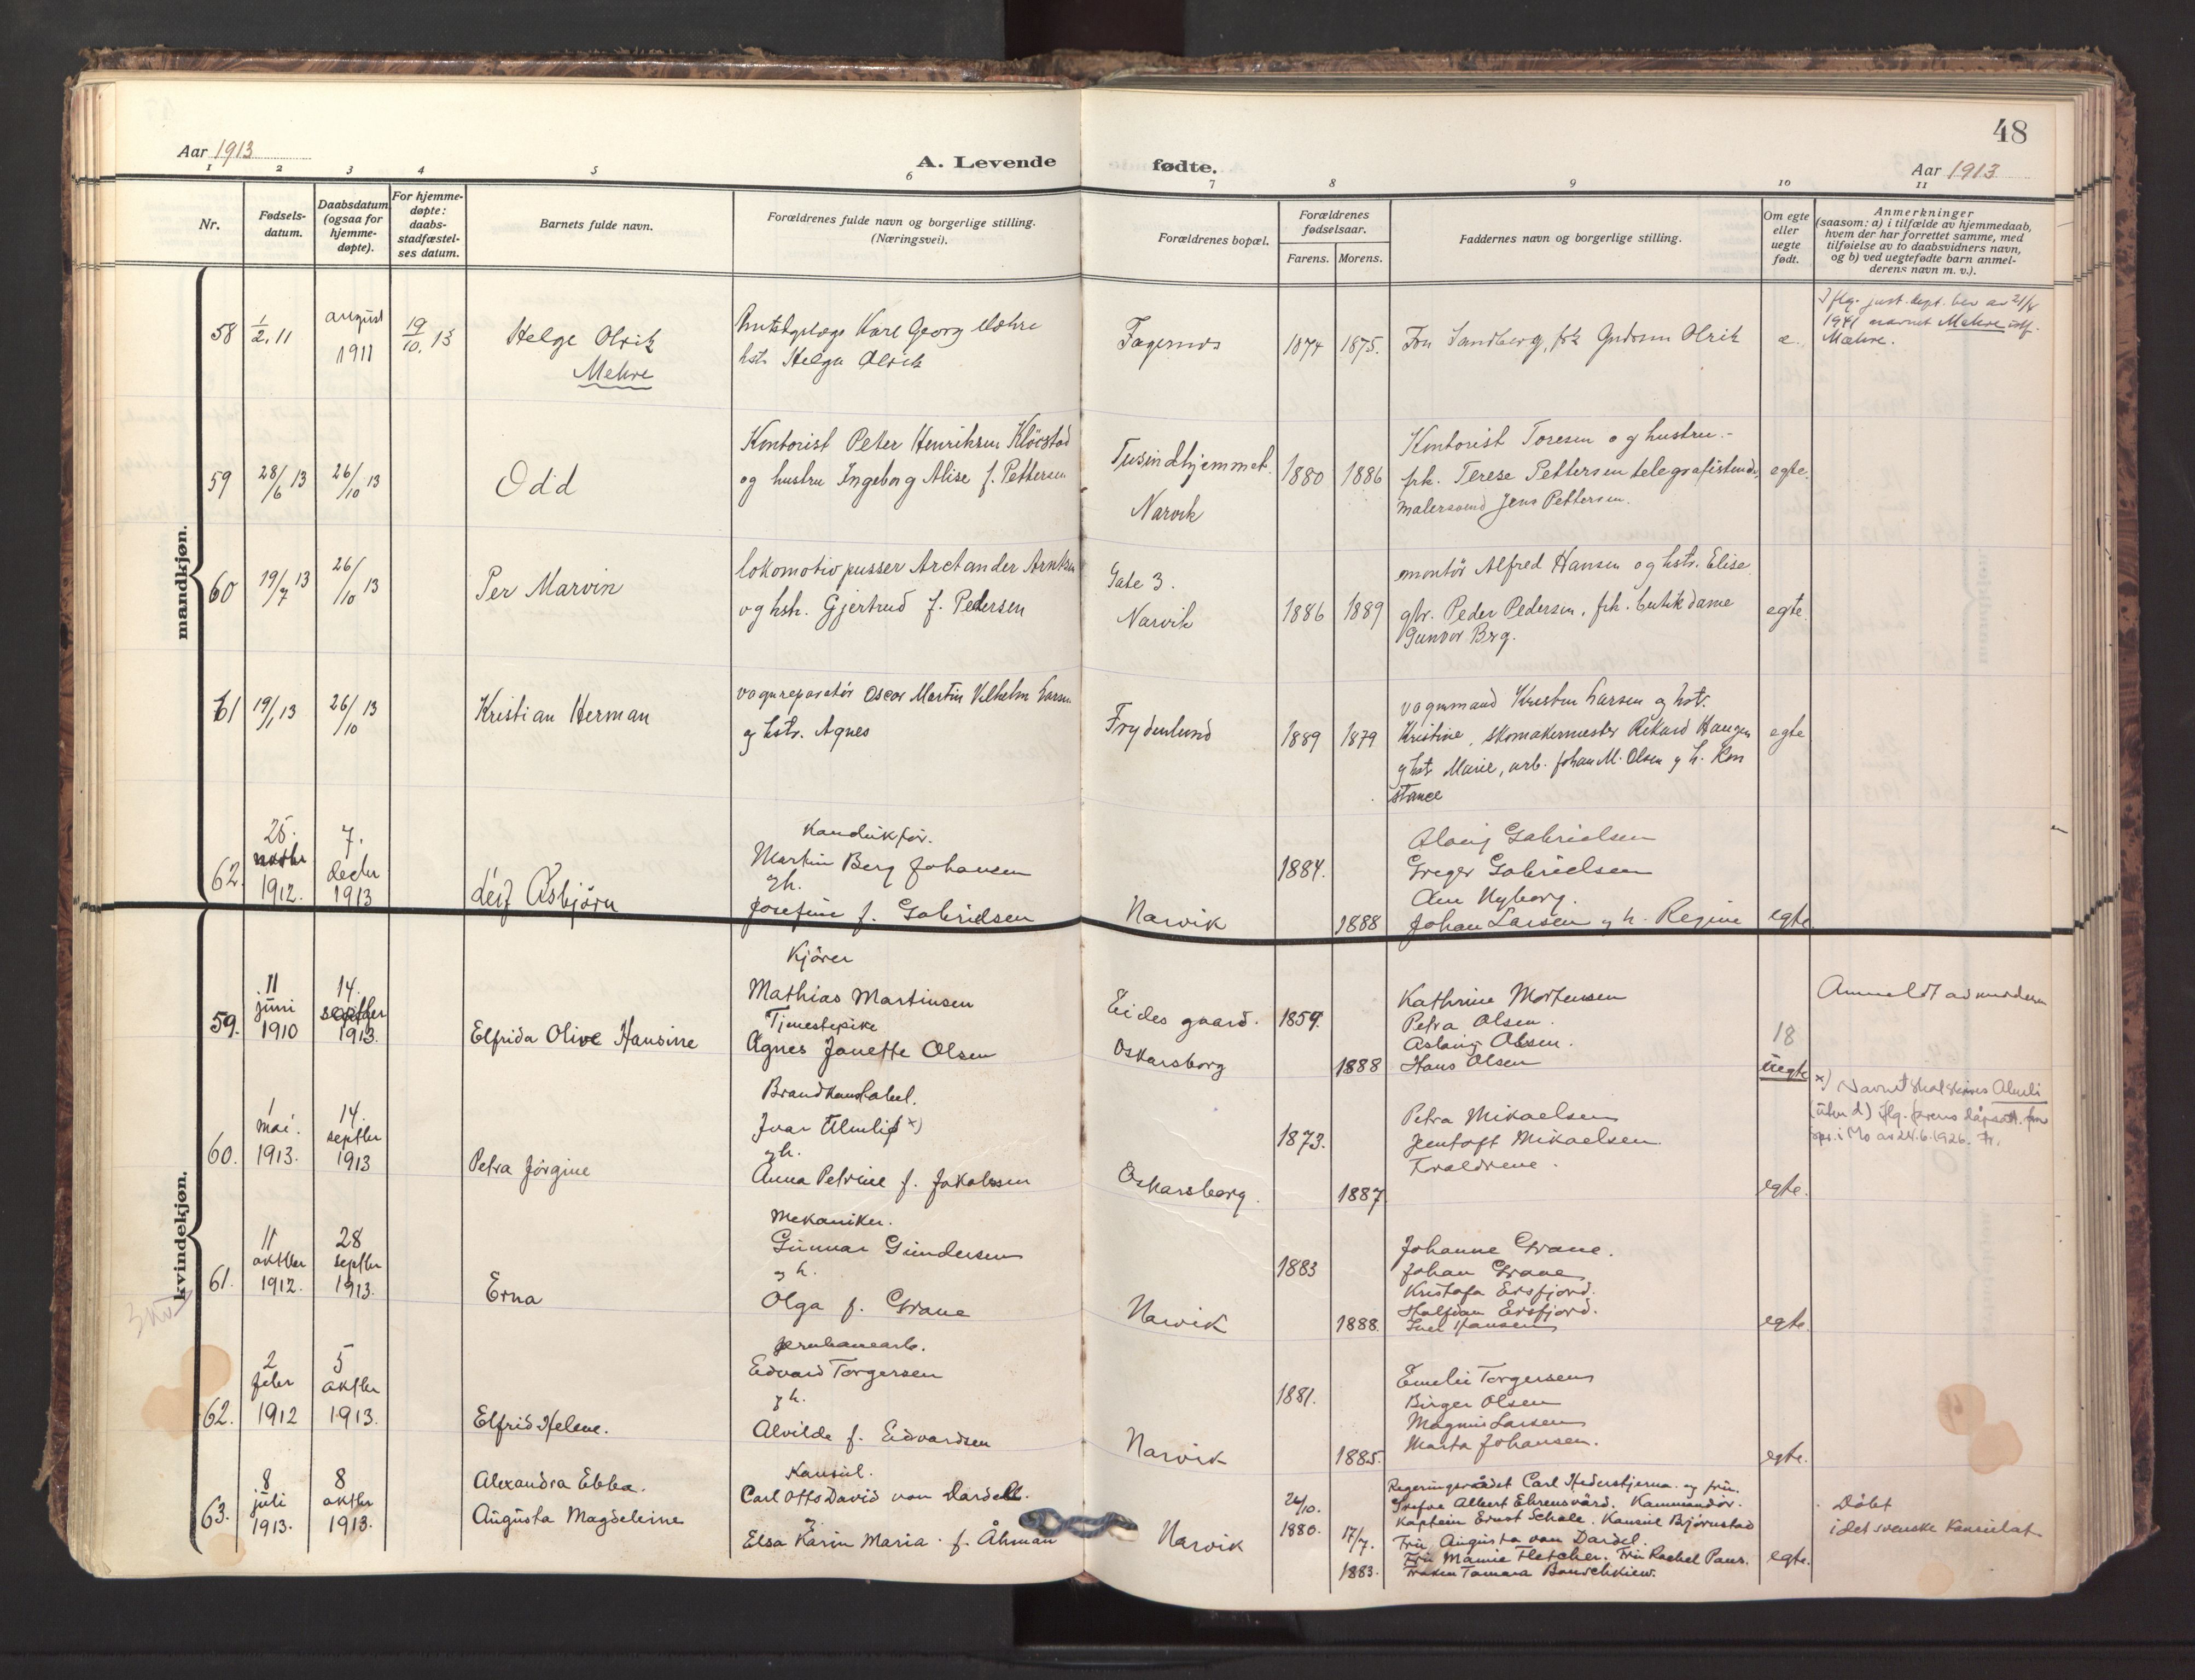 48
Aar 1913
A. Levende
fødte.
Aar 1913
1 2 3 4 5 6 7 8 9 10 11
Nr.
Fødsels-
datum.
Daabsdatum
(ogsaa for
hjemme-
døpte).
For hjemme-
døpte:
daabs-
stadfæstel-
ses datum.
Barnets fulde navn.
Forældrenes fulde navn og borgerlige stilling.
(Næringsvei).
Forældrenes bopæl.
Forældrenes
fødselsaar.
Farens. Morens.
Faddernes navn og borgerlige stilling.
Om egte
eller
uegte
født.
Anmerkninger
(saasom: a) i tilfælde av hjemmedaab,
hvem der har forrettet samme, med
tilføielse av to daabsvidners navn,
og b) ved uegtefødte barn anmel-
derens navn m. v.).
mandkjøn.
58
1/2. 11
august
1911
19/10. 13
Helge Olrik
Mehre
Karl Georg Mæhre
hstr. Helga Olrik
Fagernes
1874
1875.
Fru Sandberg, frk Gudrun Olrik
e.
Iflg. just. dept. bev av 21/8
1941 navnet Mehre istf.
Mæhre.
59
28/6 13
26/10 13
Odd
Kontorist Peter Henriksen Klöcstad
og hustru Ingeborg Alise f. Pettersen
Tusindhjemmet.
Narvik
1880
1886
Kontorist Toresen og hustru.-
frk. Terese Pettersen telegrafistinde,
malersvend Jens Pettersen.
egte.
60
19/7 13
26/10 13
Per Marvin
lokomotivpusser Arctander Arntsen
og hstr. Gjertrud f. Pedersen
Gate 3.
Narvik
1886
1889
montör Alfred Hansen og hstr. Elise.
gbr. Peder Pedersen, frk. butikdame
Gunvor Berg.
egte.
61
19/1 13
26/10 13
Kristian Herman
vognreparatör Oscar Martin Vilhelm Larsen
og hstr. Agnes
Frydenlund
1889
1879
vognmand Kristen Larsen og hstr.
Kristine, skomakermester Rikard Haugen
og hstr Marie, arb. Johan M. Olsen og h. Kon
stance
egte
62.
25.
1912.
7.
decbr
1913
Leif Asbjörn
Konduktör.
Martin Berg Johansen
og h.
Josefine f. Gabrielsen
Narvik
1884.
1888
Aslaug Gabrielsen
Greger Gabrielsen
Nyborg.
Johan Larsen og h. Regine
egte
kvindekjøn.
59.
11
juni
1910
14.
septbr
1913.
Elfrida Olive Hansine
Kjörer
Mathias Martinsen
Tjenestepike
Agnes Janette Olsen
Eides gaard.
Oskarsborg
1859.
1888
Kathrine Mortensen
Petra Olsen.
Aslaug Olsen.
Hans Olsen
18
uegte
Anmeldt av moderen
60.
1
mai.
1913.
14.
septbr
1913
Petra Jörgine
Brandkonstabel.
Ivar Almlid x)
og h.
Anna Petrine f. Jakobsen
Oskarsborg.
1873.
1887
Petra Mikaelsen
Jentoft Mikaelsen.
Forældrene.
egte.
x) Navnet skal skrives Almli
(uten d) iflg. farens dåpsatt. fra
spr. i Mo av 24.6.1926. Fr.
61.
11
oktbr
1912.
28
septbr
1913.
Erna
Mekaniker.
Gunnar Gundersen
og h.
Olga f. Grane
Narvik
1883
1888.
Johanne Grane.
Johan Grane
Kristofa Ersfjord.
Halfdan Ersfjord.
Hansen
egte.
62.
2
febr
1912
5
oktbr
1913.
Elfrid Helene.
Jernbanearb.
Edvard Torgersen
og h.
Alvilde f. Edvardsen
Narvik
1881.
1885.
Emelie Torgersen
Birger Olsen
Magnus Larsen
Marta Johansen.
egte.
63.
8
juli
1913.
8
oktbr
1913.
Alexandra Ebba.
Augusta Magdeleine
Konsul.
Carl Otto David von Dardel.
og
Elsa Karin Maria. f. Åhman
Narvik
26/10.
1880.
17/7.
1883.
Regeringsrådet Carl Hederstjerna. og fru.
Grefve Albert Ehrensvärd. Kommandör.
Kaptein Ernst Schale. Konsul Björnstad
Fru Augusta von Dardel.
Fru Mamie Fletcher. Fru Rachel Paus.
Fröken Tamara
egte.
Döbt
i det svenske Konsulat